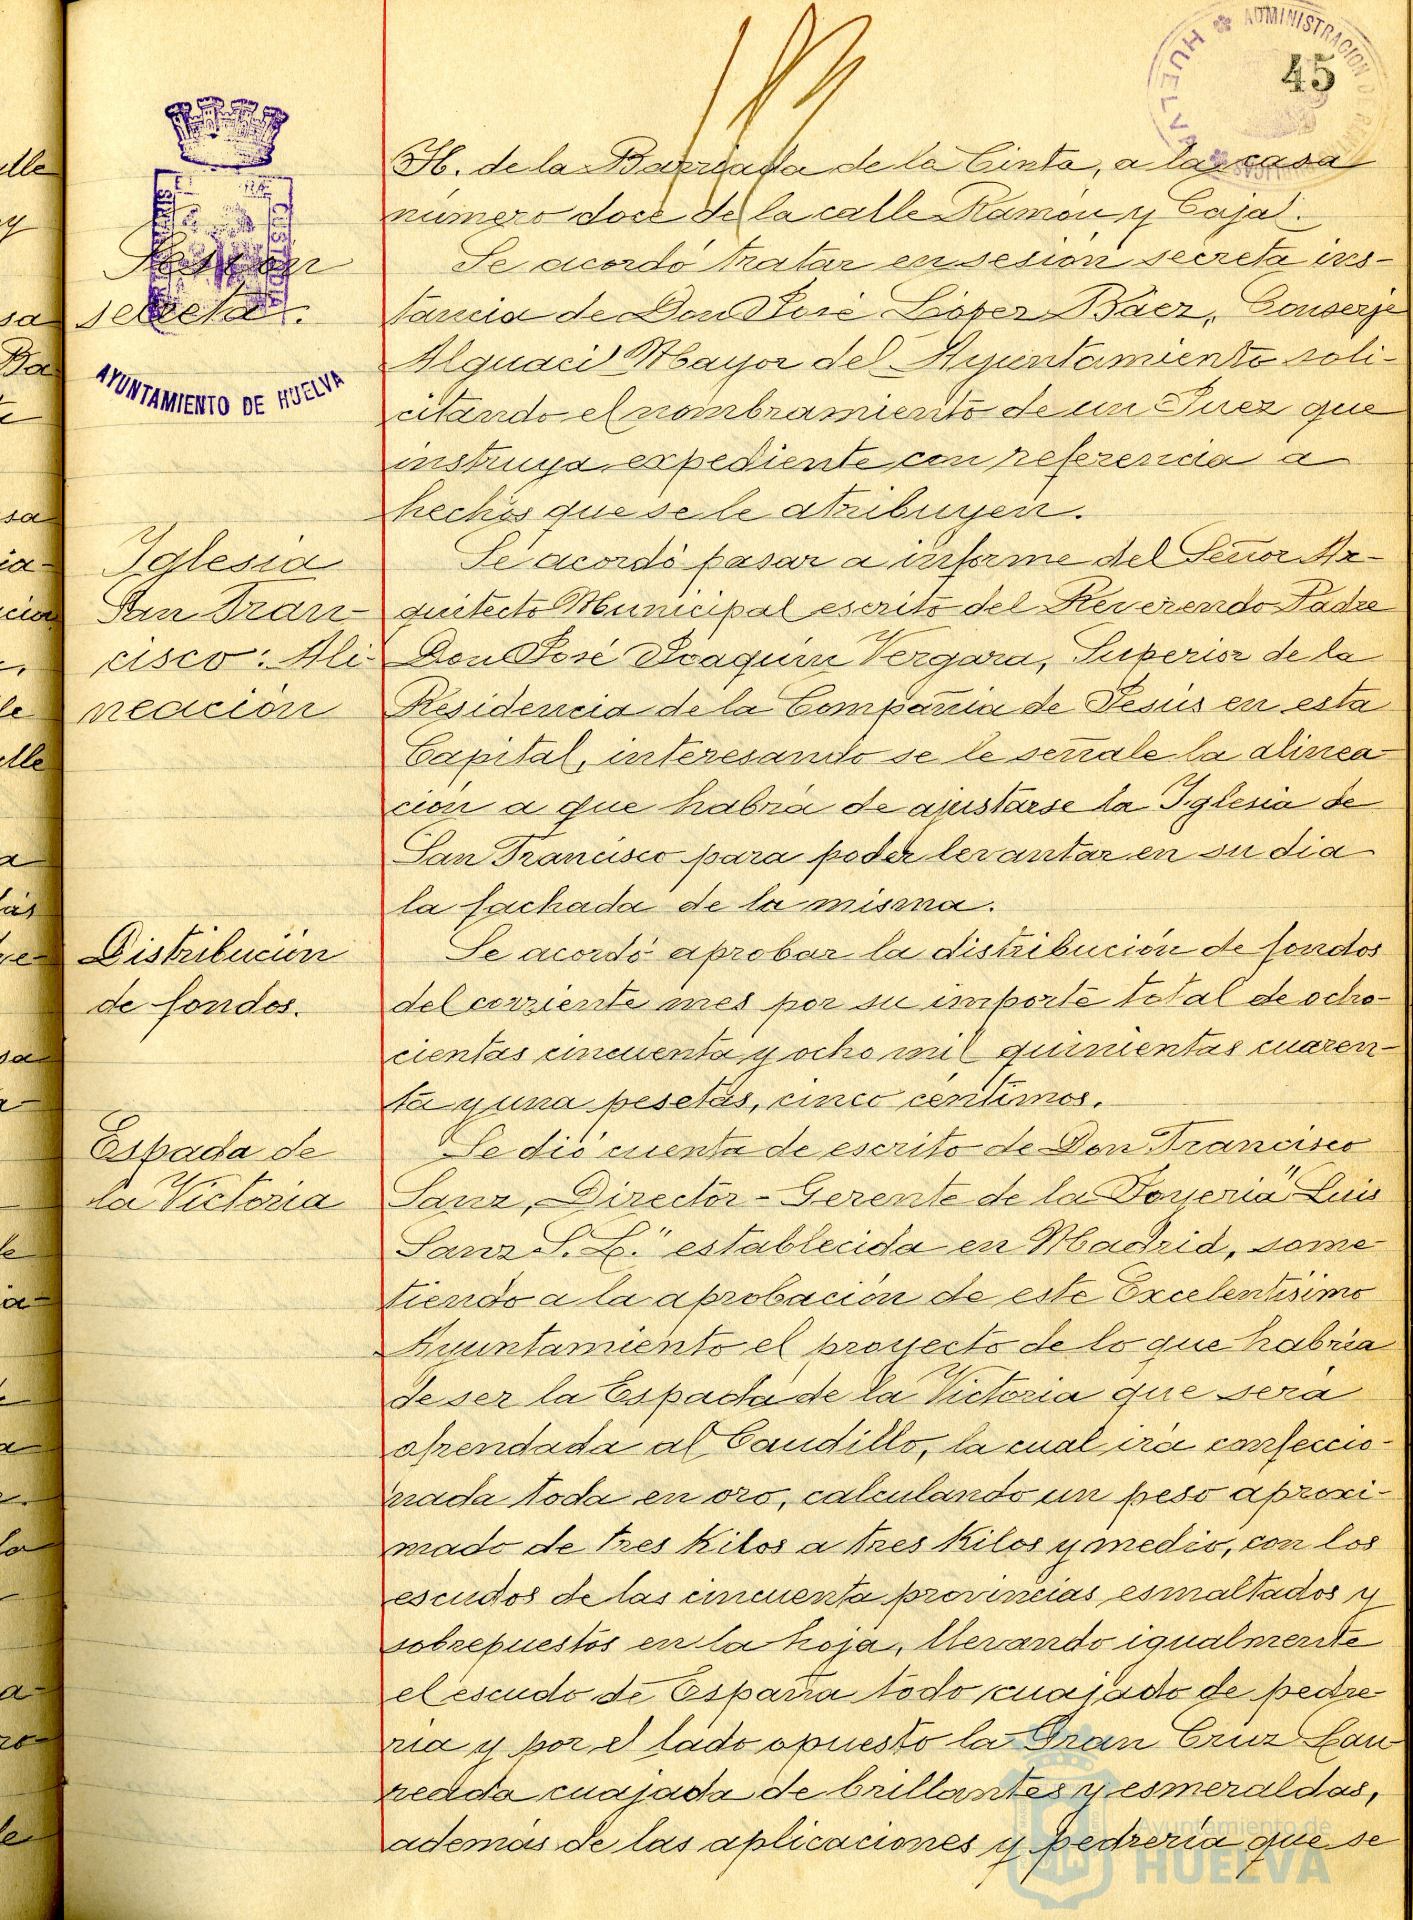 45
ADMINISTRACION DE RENTAS PUBLICAS
HUELVA
H. de la Barriada de la Cinta, a la casa
número doce de la calle Ramón y Cajal.
Sesión
secreta.
CUSTODIA
AYUNTAMIENTO DE HUELVA
Se acordó tratar en sesión secreta ins-
tancia de Don José López Báez, Conserje
Alguacil Mayor del Ayuntamiento soli-
citando el nombramiento de un Juez que
instruya expediente con referencia a
hechos que se le atribuyen.
Iglesia
San Fran-
cisco: Ali-
neación
Se acordó pasar a informe del Señor Ar-
quitecto Municipal escrito del Reverendo Padre
Don José Joaquín Vergara, Superior de la
Residencia de la Compañía de Jesús en esta
Capital, interesando se le señale la alinea-
ción a que habrá de ajustarse la Iglesia de
San Francisco para poder levantar en su dia
la fachada de la misma.
Distribución
de fondos.
Se acordó aprobar la distribución de fondos
del corriente mes por su importe total de ocho-
cientas cincuenta y ocho mil quinientas cuaren-
ta y una pesetas, cinco céntimos.
Espada de
la Victoria
Se dió cuenta de escrito de Don Francisco
Sanz, Director-Gerente de la Joyeria "Luis
Sanz S. L." establecida en Madrid, some-
tiendo a la aprobación de este Excelentísimo
Ayuntamiento el proyecto de lo que habría
de ser la Espada de la Victoria que será
ofrendada al Caudillo, la cual irá confeccio-
nada toda en oro, calculando un peso aproxi-
mado de tres kilos a tres kilos y medio, con los
escudos de las cincuenta provincias esmaltados y
sobrepuestos en la hoja, llevando igualmente
el escudo de España todo cuajado de pedre-
ria y por el lado opuesto la Gran Cruz Lau-
reada cuajada de brillantes y esmeraldas,
además de las aplicaciones y pedrería que se
Ayuntamiento de
HUELVA